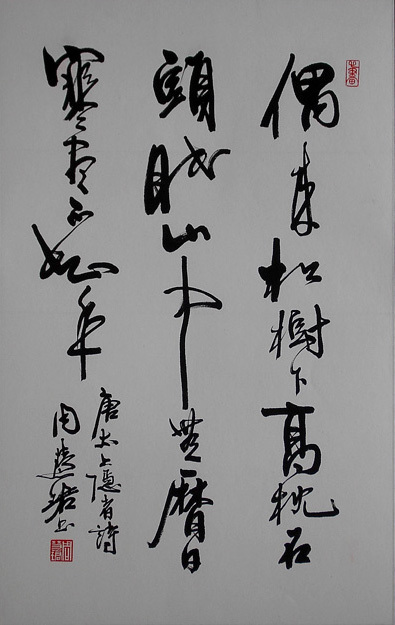 偶来松樹下高枕石
頭眠山中無曆日
寒尽不知年
唐太上隱者詩
周